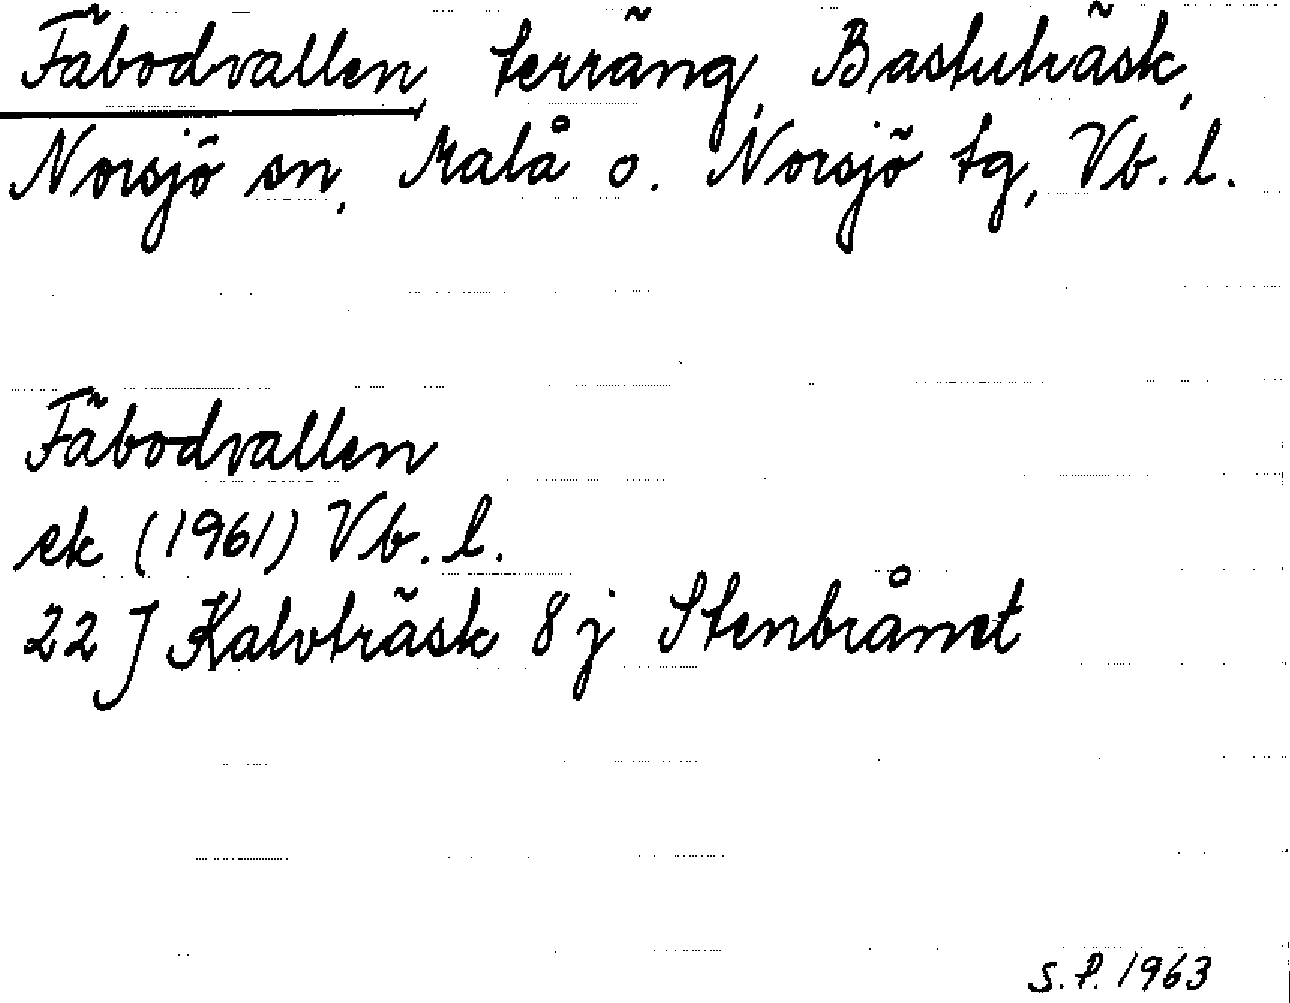 Fäbodvallen, terräng, Bastuträsk,
Norsjö sn, Malå o. Norsjö tg, Vb. l.
Fäbodvallen
ek (1961) Vb. l.
22 J Kalvträsk 8 j Stenbrånet
S.P. 1963